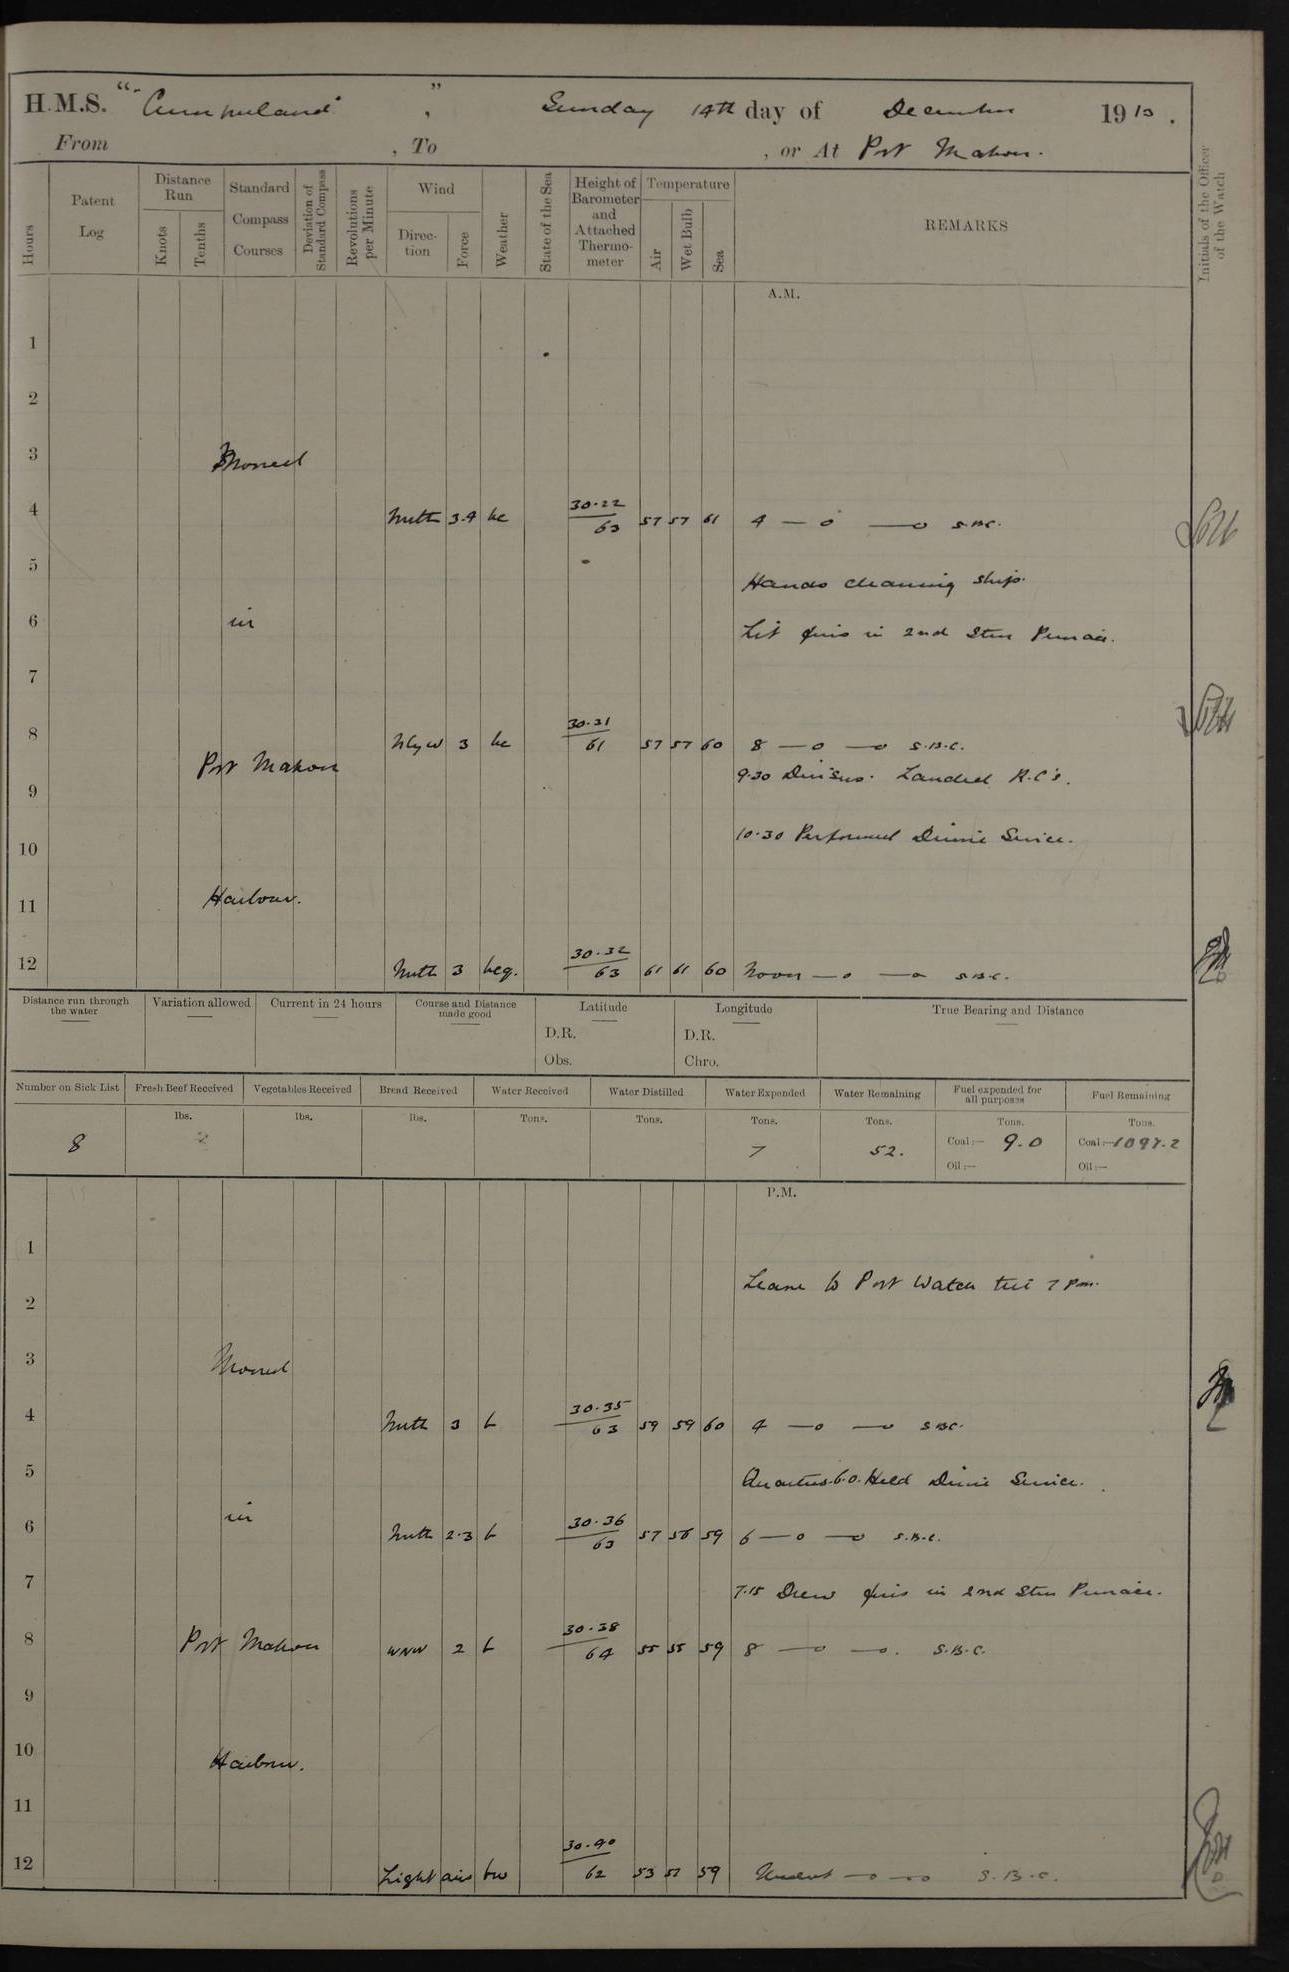 H.M.S. "Cumberland", Sunday 14th day of December 1913.
From , To , or At Port Mahon.
Hours
Patent Log
Distance Run
Knots
Tenths
Standard Compass Courses
Deviation of Standard Compass
Revolutions per Minute
Wind
Direction
Force
Weather
State of the Sea
Height of Barometer and Attached Thermometer
Temperature
Air
Wet Bulb
Sea
REMARKS
Initials of the Officer of the Watch
A.M.
1
2
3 Moored
4 North 3.4 bc 30.22 63 57 57 61 4 — o — o S.B.C.
5 Hands cleaning ship.
6 in Lit fires in 2nd Stm Pinnace.
7
8 NbyW 3 bc 30.31 61 57 57 60 8 — o — o S.B.C.
Port Mahon 9.30 Divisns. Landed R.C's.
9
10 10.30 Performed Divine Service.
11 Harbour.
12 North 3 bcq. 30.32 63 61 61 60 Noon — o — o S.B.C.
Distance run through the water
Variation allowed
Current in 24 hours
Course and Distance made good
Latitude
D.R.
Obs.
Longitude
D.R.
Chro.
True Bearing and Distance
Number on Sick List Fresh Beef Received Vegetables Received Bread Received Water Received Water Distilled Water Expended Water Remaining Fuel expended for all purposes Fuel Remaining
lbs. lbs. lbs. Tons. Tons. Tons. Tons. Tons. Tons.
8 7 52. Coal:— 9.0 Coal:— 1097.2
Oil:— Oil:—
P.M.
1
Leave to Port Watch till 7 pm.
2
3 Moored
4 North 3 b 30.35 63 59 59 60 4 — o — o S.B.C.
5 Quarters. 6.0. Held Divine Service.
6 in North 2.3 b 30.36 63 57 56 59 6 — o — o S.B.C.
7 7.15 Drew fires in 2nd Stm Pinnace.
8 Port Mahon WNW 2 b 30.38 64 55 55 59 8 — o — o. S.B.C.
9
10 Harbour.
11
12 Light airs bw 30.40 62 53 51 59 Midnt — o — o S.B.C.